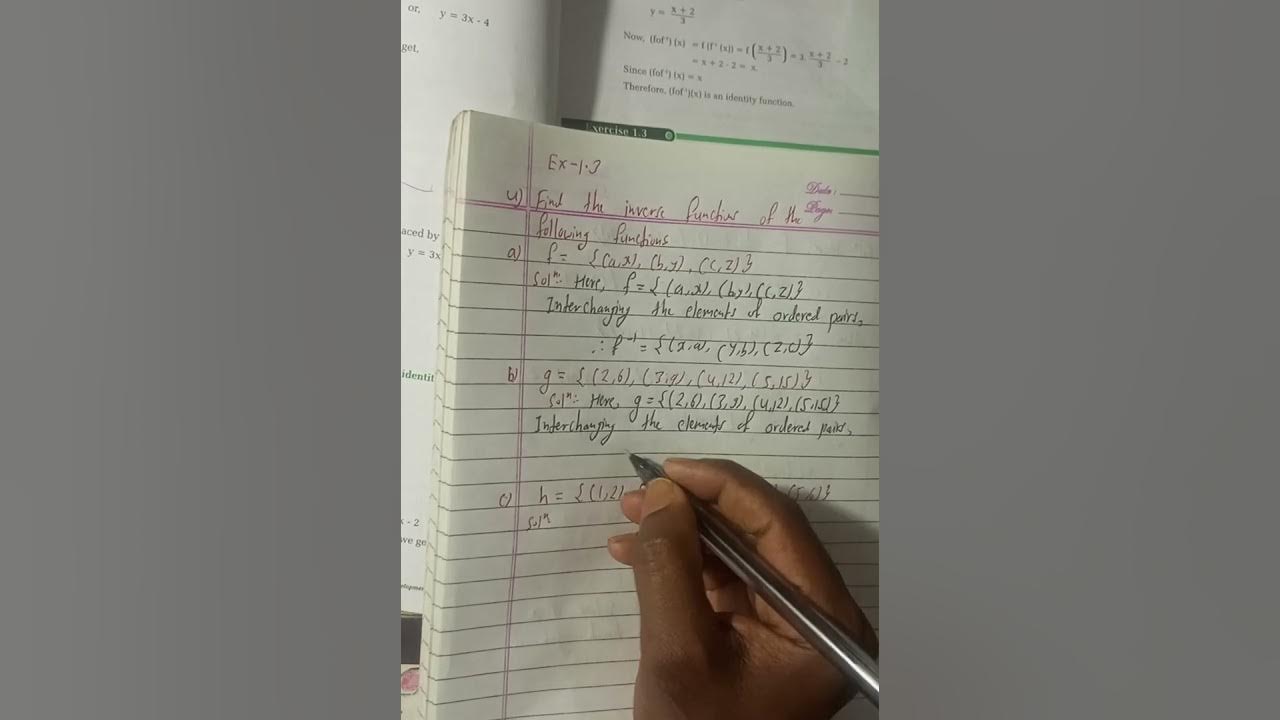 or, y = 3x - 4
get,
y = x + 2 / 3
Now, (fof⁻¹) (x) = f (f⁻¹ (x)) = f (x + 2 / 3) = 3. x + 2 / 3 - 2
= x + 2 - 2 = x
Since (fof⁻¹) (x) = x
Therefore, (fof⁻¹)(x) is an identity function.
Exercise 1.3
aced by
y = 3x
identit
x - 2
we ge
Date :
Page:
Ex-1.3
4) Find the inverse function of the
following functions
a) f = {(a,x), (b,y), (c,z)}
Solⁿ: Here, f = {(a,x), (b,y), (c,z)}
Interchanging the elements of ordered pairs,
∴ f⁻¹ = {(x,a), (y,b), (z,c)}
b) g = {(2,6), (3,9), (4,12), (5,15)}
Solⁿ: Here, g = {(2,6), (3,9), (4,12), (5,15)}
Interchanging the elements of ordered pairs,
c) h = {(1,2), (5,6)}
Solⁿ